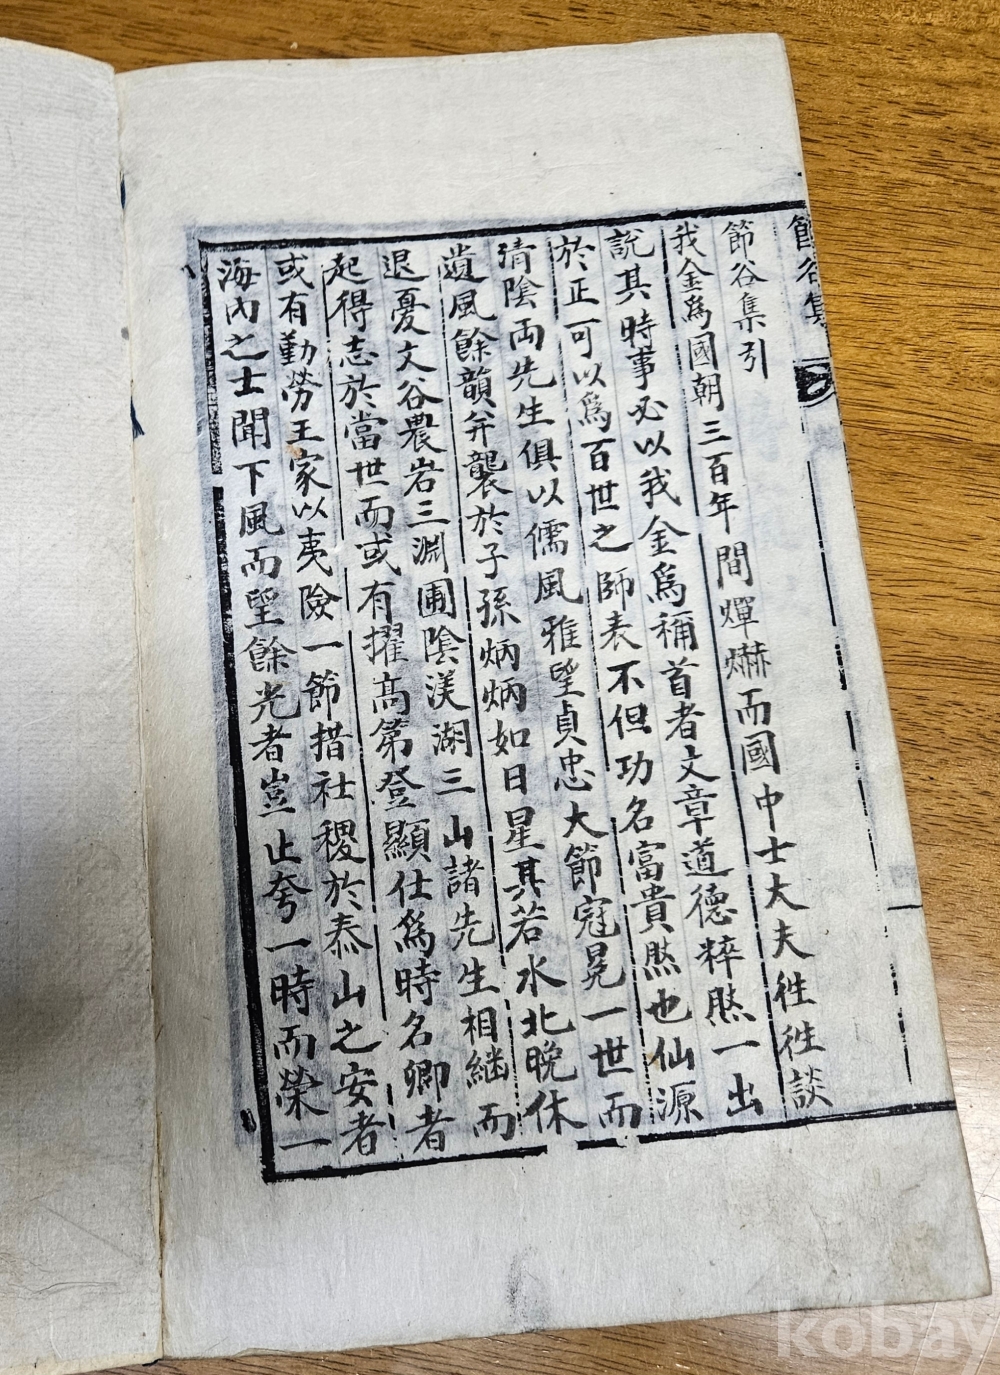 節谷集
節谷集引
我金爲國朝三百年間燀爀而國中士大夫徃徃談
說其時事必以我金爲稱首者文章道德粹然一出
於正可以爲百世之師表不但功名富貴然也仙源
淸陰兩先生俱以儒風雅望貞忠大節冠冕一世而
遺風餘韻弁襲於子孫炳炳如日星其若水北晚休
退憂文谷農岩三淵圃陰渼湖三山諸先生相継而
起得志於當世而或有擢高第登顯仕爲時名卿者
或有勤勞王家以夷險一節措社稷於泰山之安者
海內之士聞下風而望餘光者豈止夸一時而榮一
一
kobay